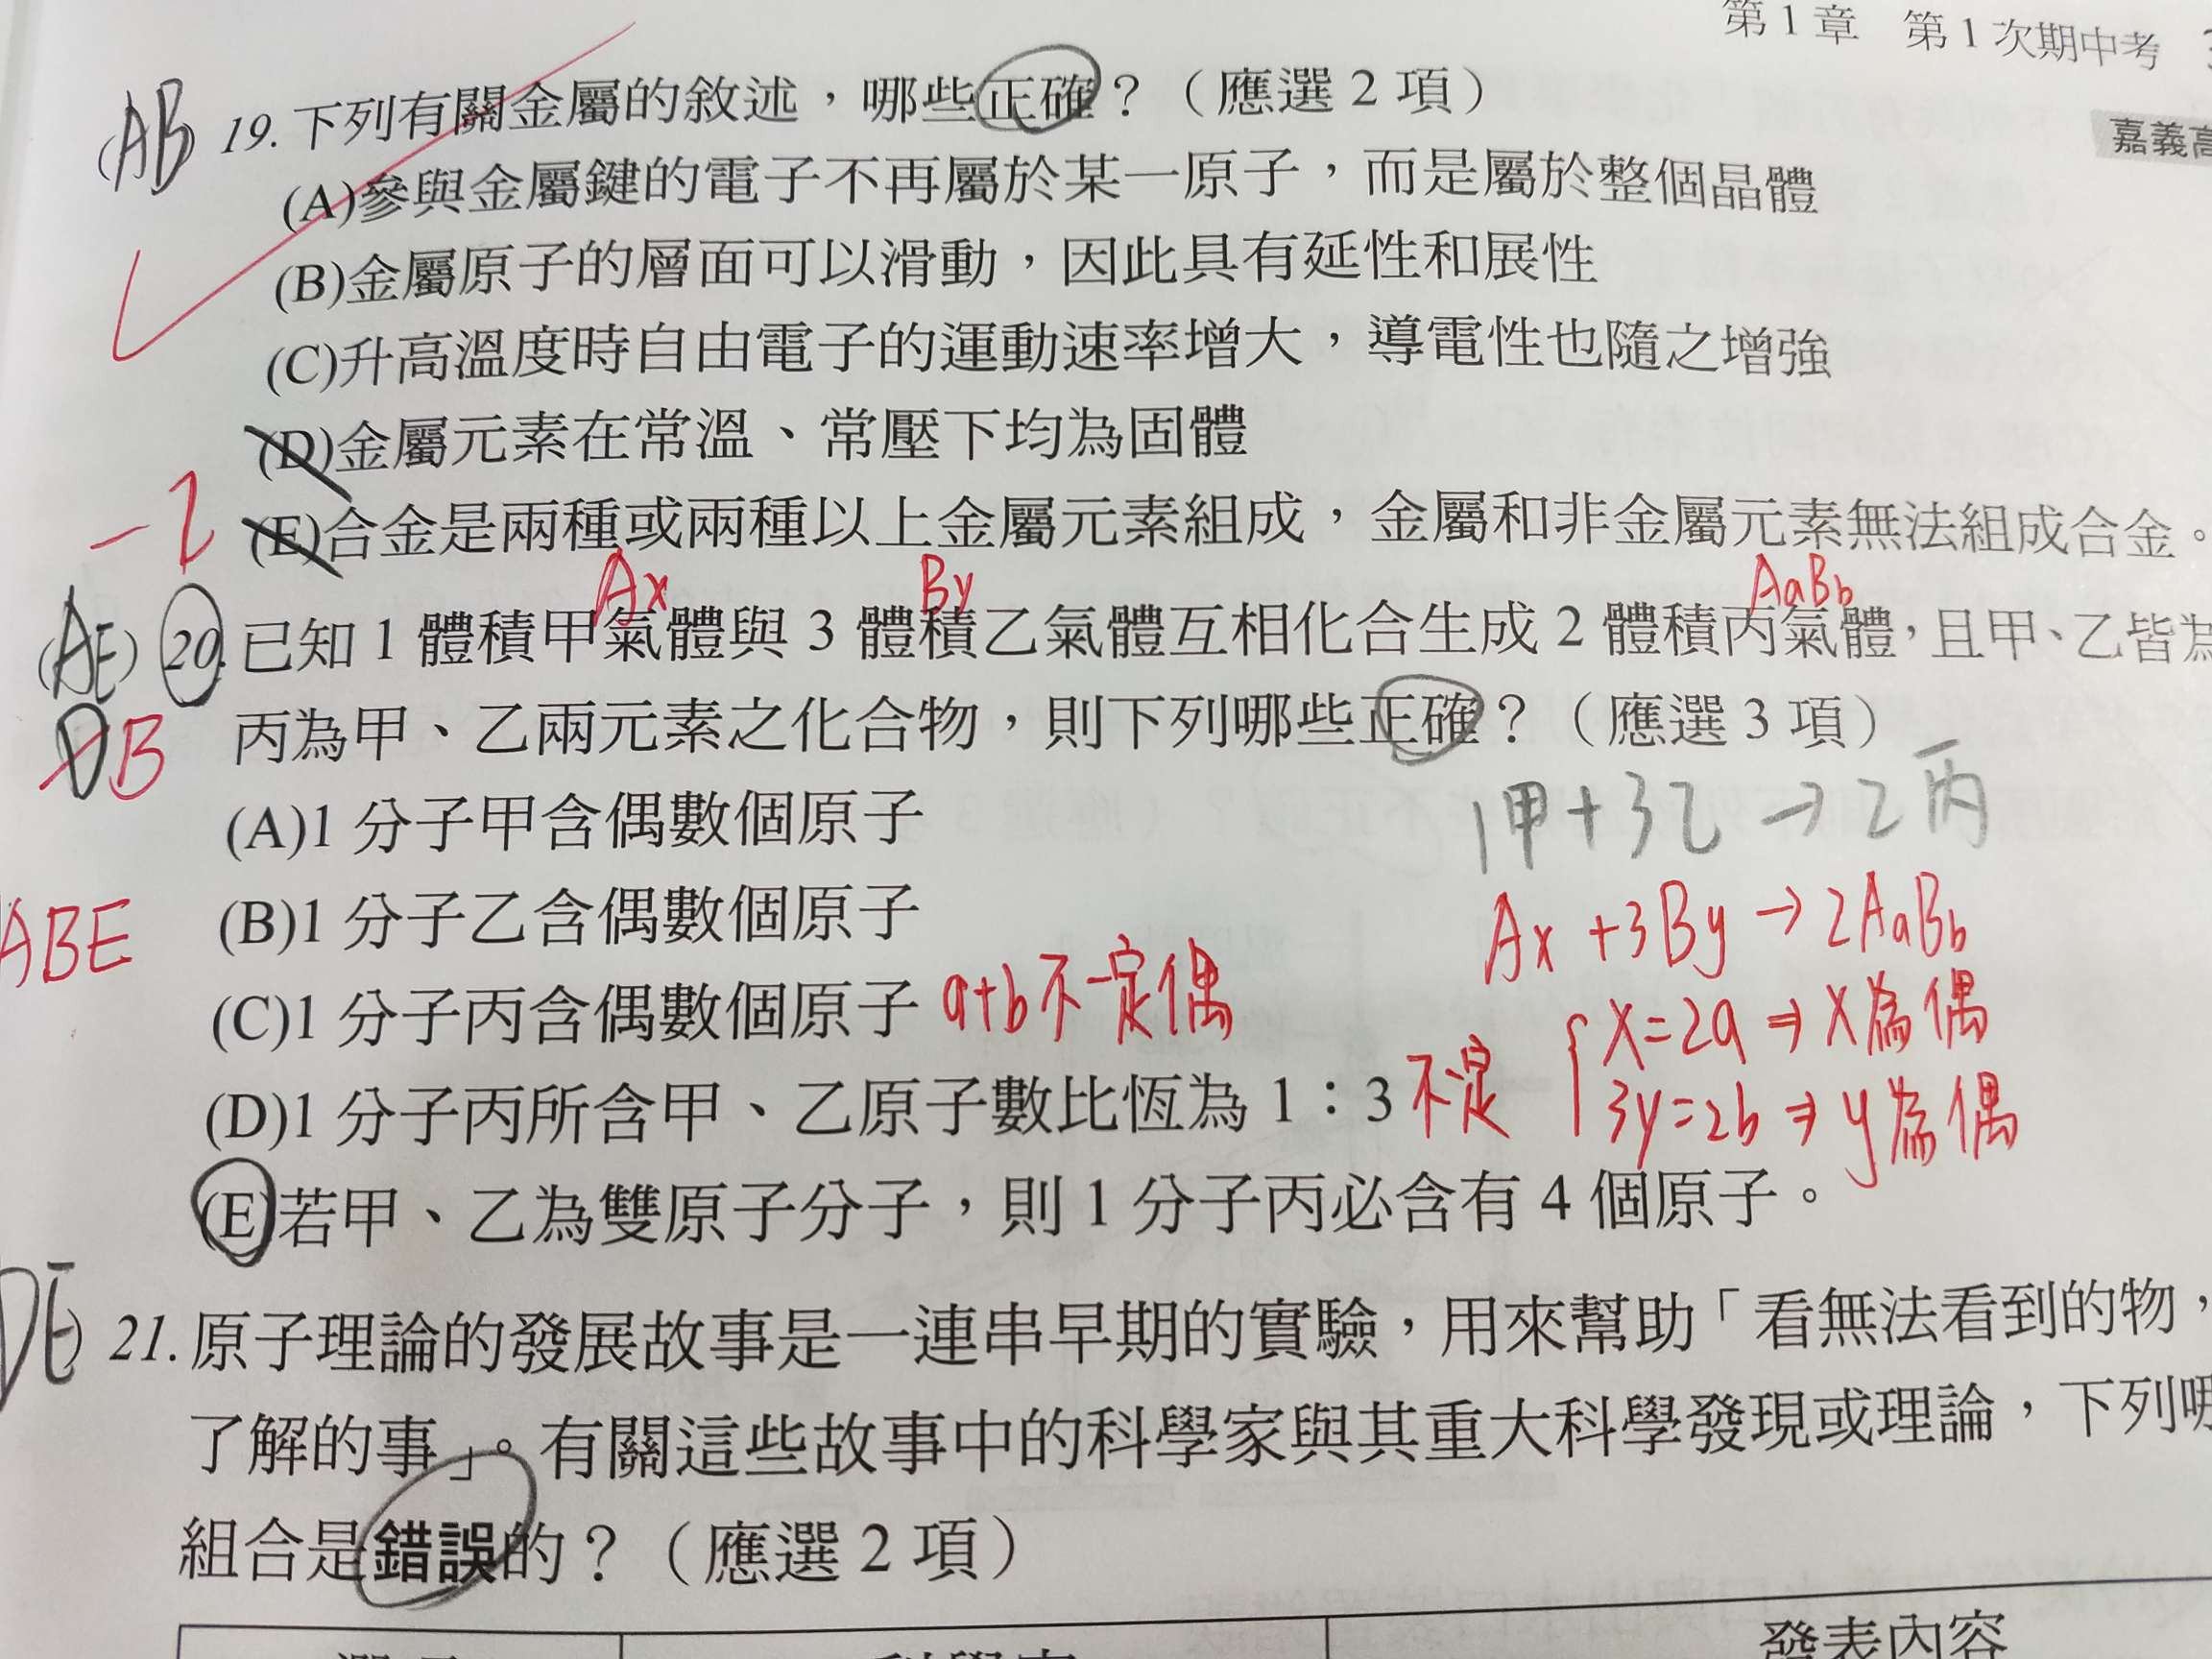 第1章 第1次期中考
嘉義高
(AB) 19. 下列有關金屬的敘述，哪些正確？（應選 2 項）
(A)參與金屬鍵的電子不再屬於某一原子，而是屬於整個晶體
(B)金屬原子的層面可以滑動，因此具有延性和展性
(C)升高溫度時自由電子的運動速率增大，導電性也隨之增強
(D)金屬元素在常溫、常壓下均為固體
(E)合金是兩種或兩種以上金屬元素組成，金屬和非金屬元素無法組成合金。
-2
Ax By AaBb
(AE) 20. 已知 1 體積甲氣體與 3 體積乙氣體互相化合生成 2 體積丙氣體，且甲、乙皆為
DB 丙為甲、乙兩元素之化合物，則下列哪些正確？（應選 3 項）
1甲+3乙→2丙
(A)1 分子甲含偶數個原子
ABE
(B)1 分子乙含偶數個原子
Ax+3By→2AaBb
(C)1 分子丙含偶數個原子 a+b不一定偶
x=2a⇒x為偶
(D)1 分子丙所含甲、乙原子數比恆為 1：3 不一定
3y=2b⇒y為偶
(E)若甲、乙為雙原子分子，則 1 分子丙必含有 4 個原子。
DE) 21. 原子理論的發展故事是一連串早期的實驗，用來幫助「看無法看到的物，
了解的事」。有關這些故事中的科學家與其重大科學發現或理論，下列哪
組合是錯誤的？（應選 2 項）
發表內容